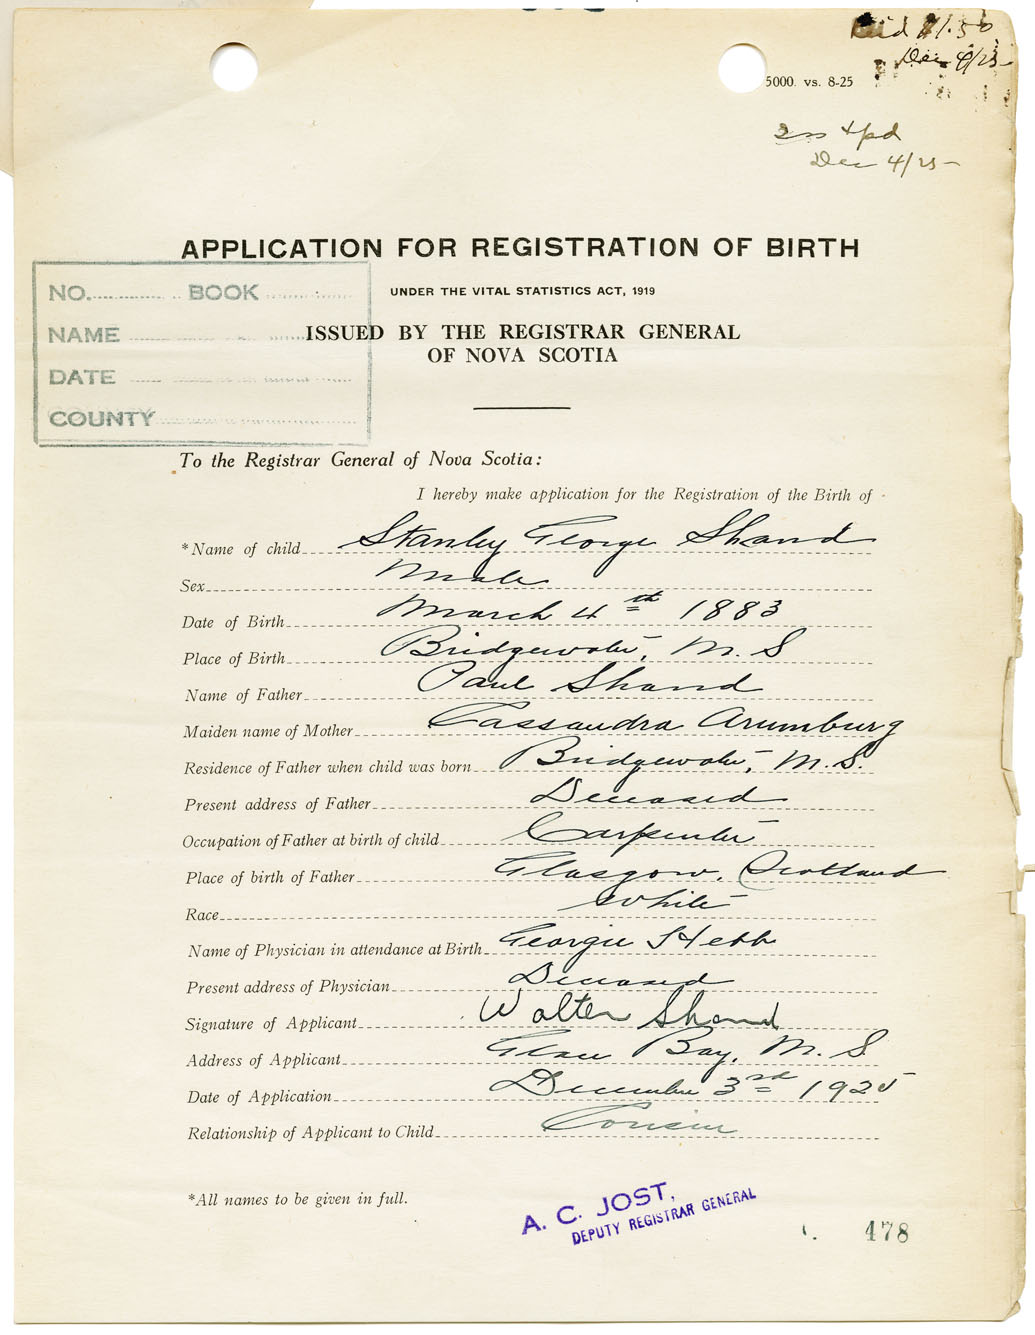 Paid $1.50
Dec 4/25
5000. vs. 8-25
Dec 4/25
APPLICATION FOR REGISTRATION OF BIRTH
NO. BOOK
UNDER THE VITAL STATISTICS ACT, 1919
NAME
ISSUED BY THE REGISTRAR GENERAL
OF NOVA SCOTIA
DATE
COUNTY
To the Registrar General of Nova Scotia:
I hereby make application for the Registration of the Birth of
*Name of child Stanley George Shand
Sex Male
Date of Birth March 4th 1883
Place of Birth Bridgewater, N. S
Name of Father Paul Shand
Maiden name of Mother Cassandra Arumburg
Residence of Father when child was born Bridgewater, N. S.
Present address of Father Deceased
Occupation of Father at birth of child Carpenter
Place of birth of Father Glasgow, Scotland
Race White
Name of Physician in attendance at Birth George Hebb
Present address of Physician Deceased
Signature of Applicant Walter Shand
Address of Applicant Glace Bay, N. S.
Date of Application December 3rd 1925
Relationship of Applicant to Child Cousin
*All names to be given in full.
A. C. JOST,
DEPUTY REGISTRAR GENERAL
478